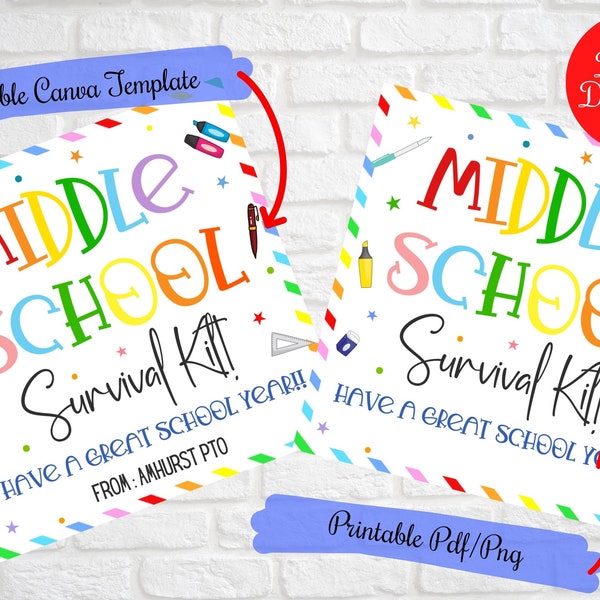 Canva Template
MIDDLE
SCHOOL
Survival Kit!
HAVE A GREAT SCHOOL YEAR!!
FROM: AMHURST PTO
MIDDL
SCHOO
Survival Kit!
HAVE A GREAT SCHOOL
Printable Pdf/Png